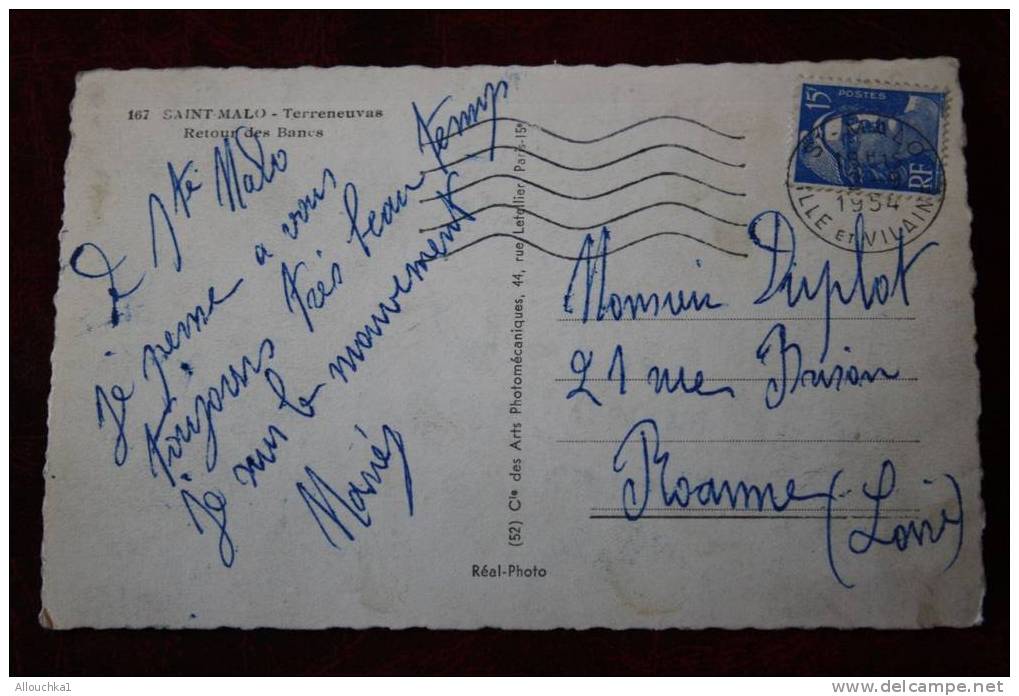 167 SAINT-MALO - Terreneuvas
Retour des Bancs
de Sté Malo
Je pense a vous
toujours très beau temp
Je suis le mouvement
Mariés
(52) Cie des Arts Photomécaniques, 44, rue Letellier, Paris-15e
Réal-Photo
15F POSTES
RF
ST-MALO
1954
ILLE ET VILAINE
Monsieur Duplot
21 rue Brison
Roanne
(Loire)
Allouchka1
http://www.delcampe.net